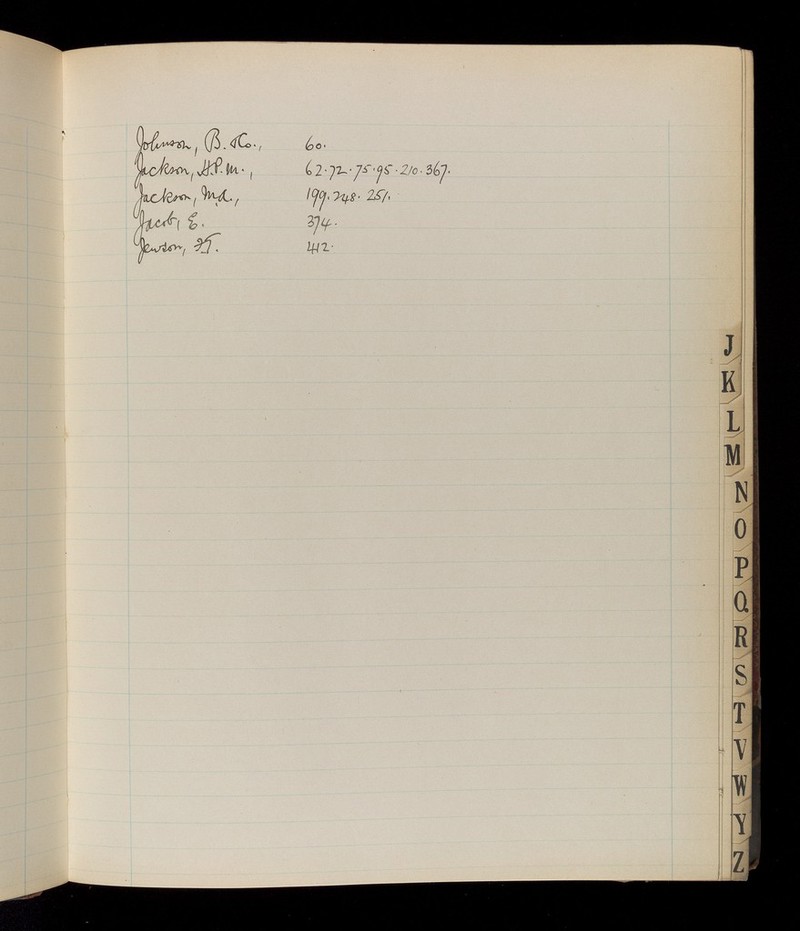 Johnson, B. & Co., 60.
Jackson, H.P.M., 62.72.75.95.210.367.
Jackson, M.A., 199.248.251.
Jacob, E. 374.
Jewson, 412.
J
K
L
M
N
O
P
Q
R
S
T
V
W
Y
Z